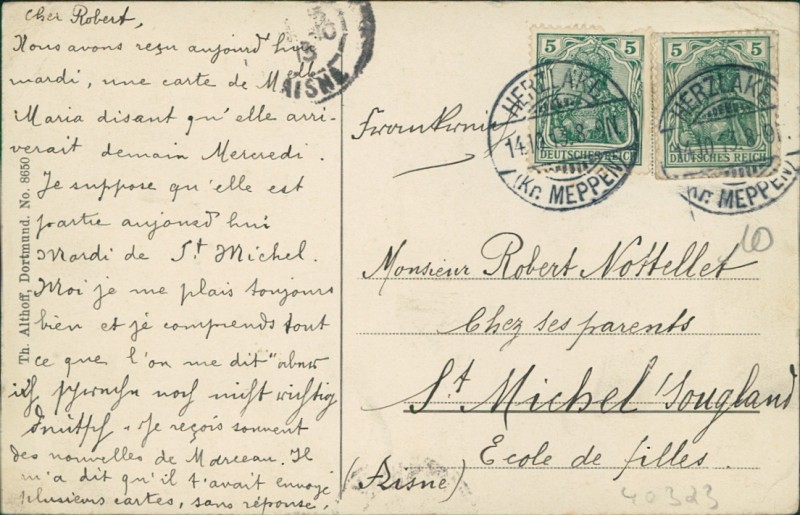 Cher Robert,
Nous avons reçu aujourd'hui
mardi, une carte de Mlle
Maria disant qu'elle arri-
verait demain Mercredi.
Je suppose qu'elle est
partie aujourd'hui
Mardi de St Michel.
Moi je me plais toujours
bien et je comprends tout
ce que l'on me dit "aber
ich spreche noch nicht richtig
deutsch. Je reçois souvent
des nouvelles de Marceau. Il
m'a dit qu'il t'avait envoyé
plusieurs cartes, sans réponse.
Th. Althoff, Dortmund. No. 8650
AISNE
5 5
DEUTSCHES REICH
HERZLAKE
(Kr. MEPPEN)
5 5
DEUTSCHES REICH
HERZLAKE
(Kr. MEPPEN)
Frankreich
Monsieur Robert Nottellet
Chez ses parents
St Michel Sougland
École de filles.
(Aisne)
40323